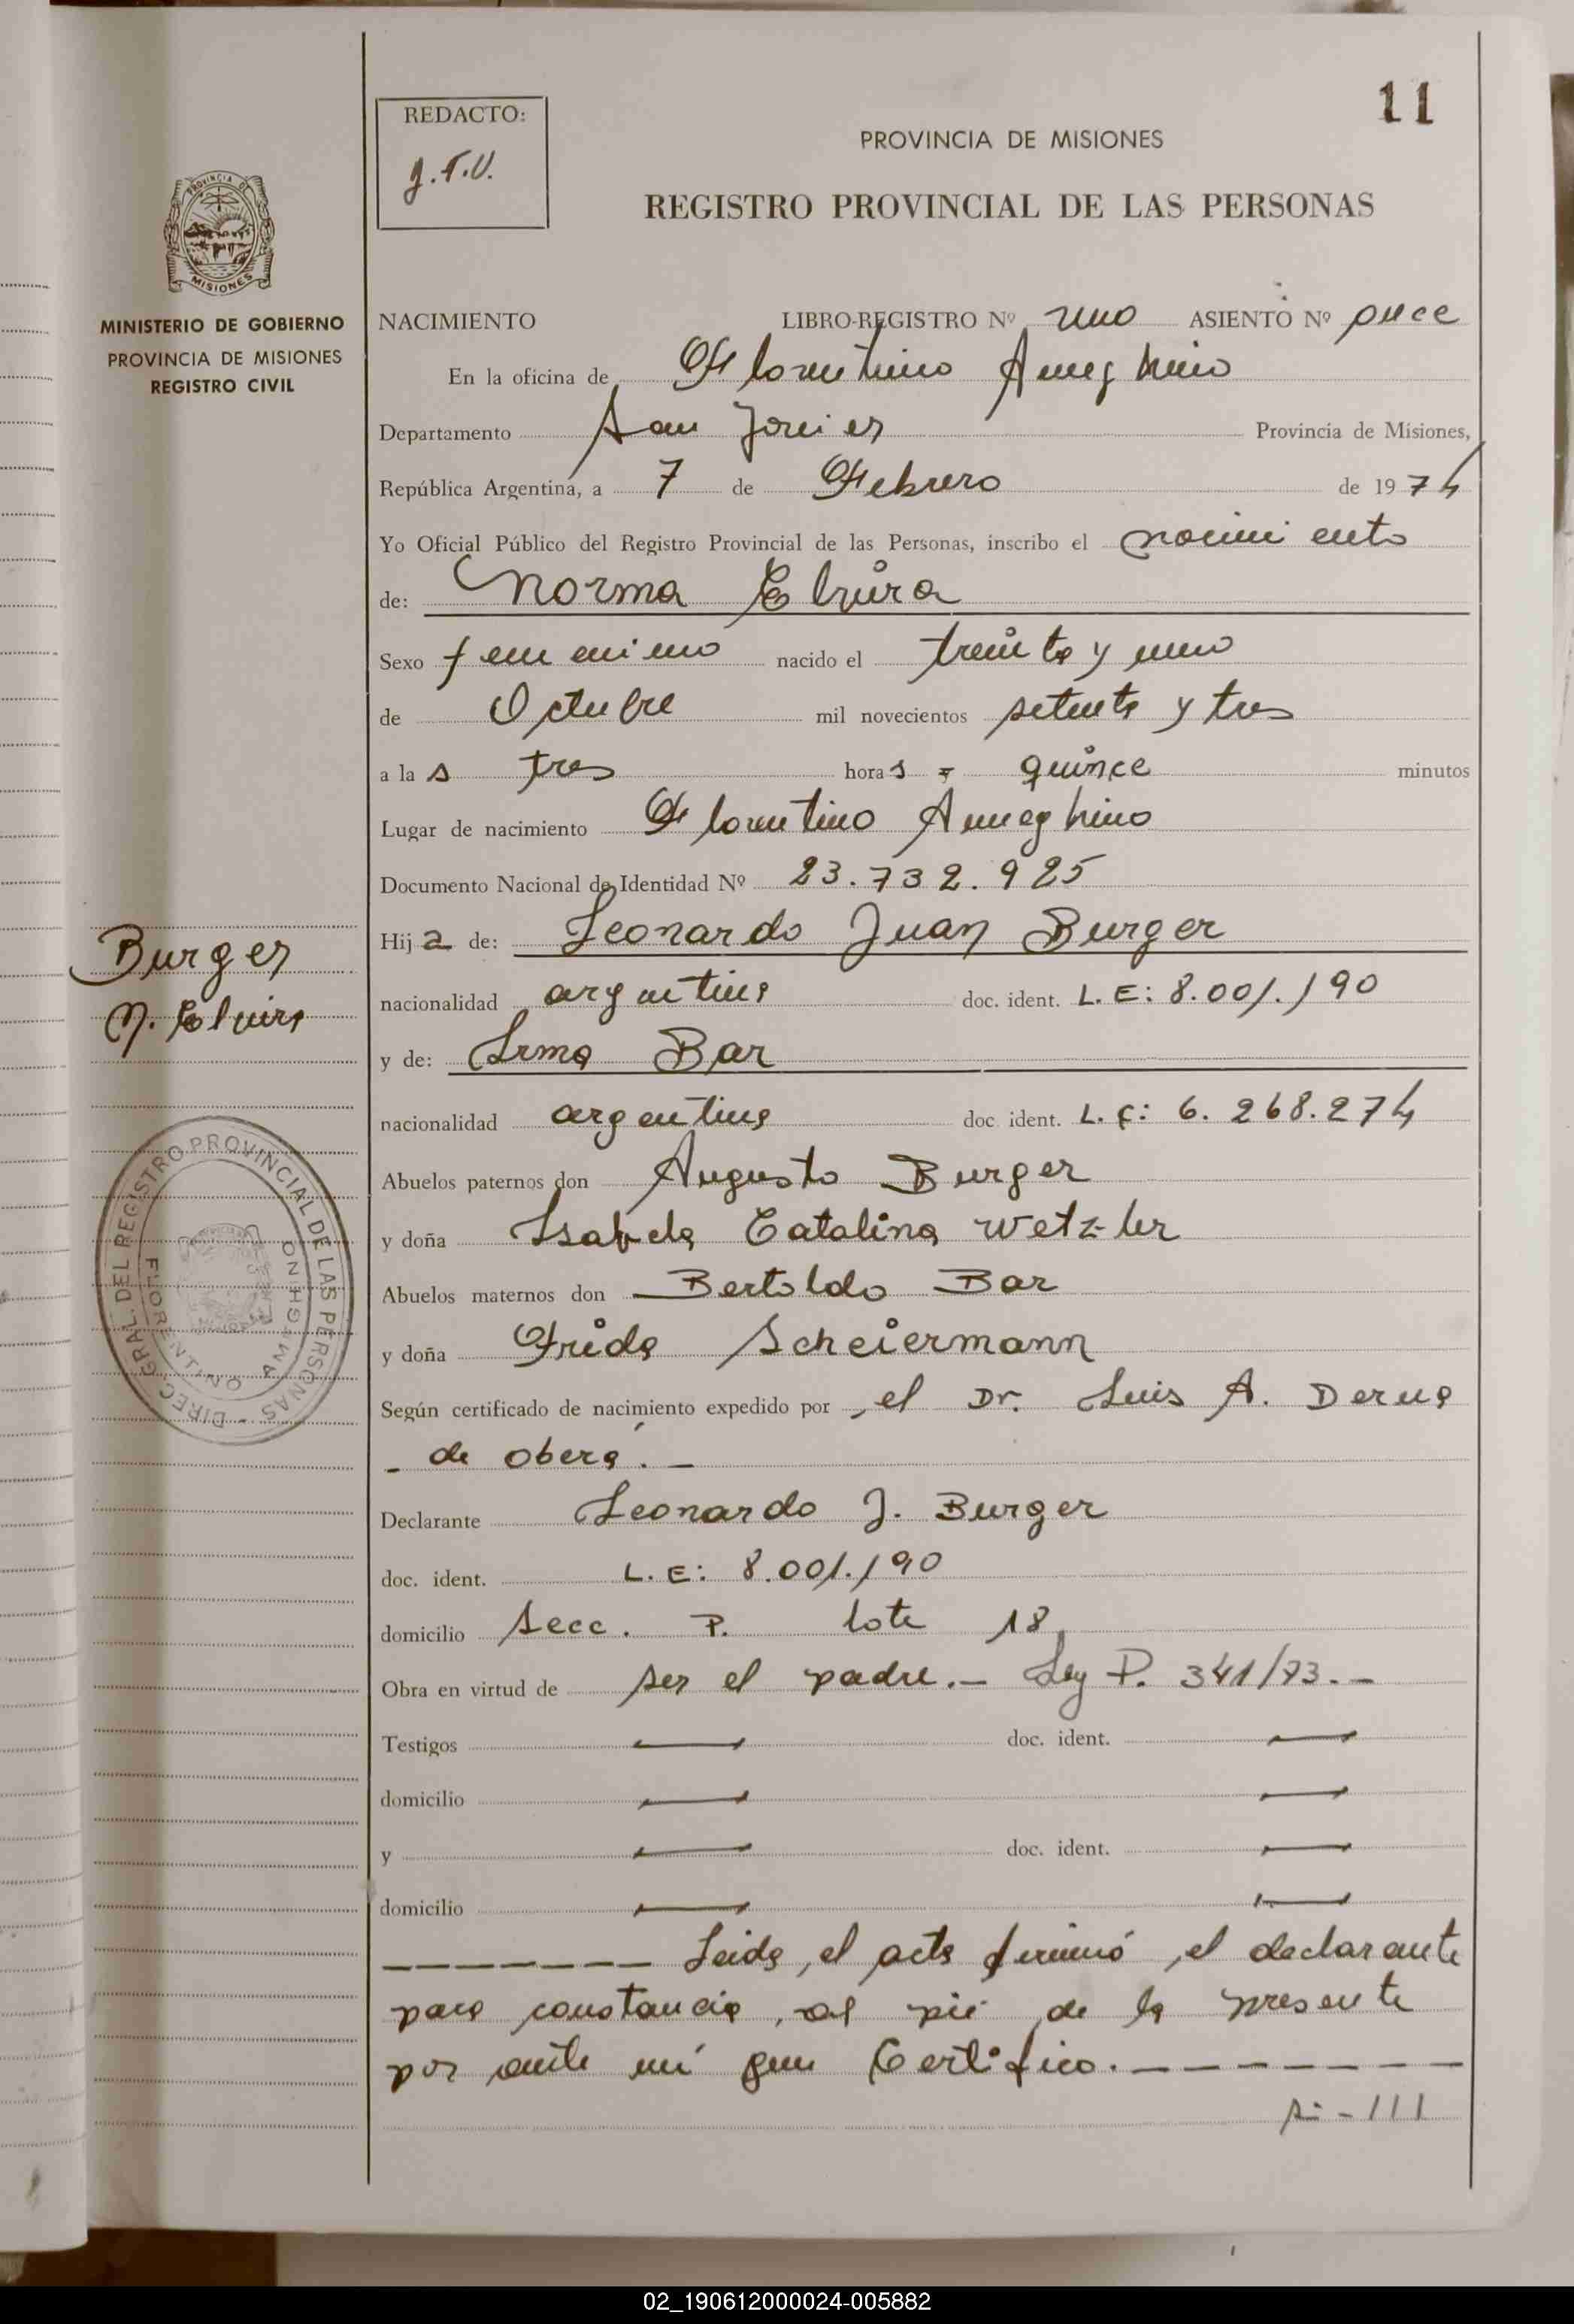 11
REDACTO:
J.F.V.
PROVINCIA DE MISIONES
REGISTRO PROVINCIAL DE LAS PERSONAS
PROVINCIA DE
MISIONES
MINISTERIO DE GOBIERNO
PROVINCIA DE MISIONES
REGISTRO CIVIL
NACIMIENTO LIBRO-REGISTRO Nº uno ASIENTO Nº once
En la oficina de Florentino Ameghino
Departamento San Javier Provincia de Misiones,
República Argentina, a 7 de Febrero de 1974
Yo Oficial Público del Registro Provincial de las Personas, inscribo el nacimiento
de: Norma Elvira
Sexo femenino nacido el treinta y uno
de Octubre mil novecientos setenta y tres
a las tres horas quince minutos
Lugar de nacimiento Florentino Ameghino
Documento Nacional de Identidad Nº 23.732.925
Hija de: Leonardo Juan Burger
Burger
N. Elvira
nacionalidad argentina doc. ident. L.E: 8.001.190
y de: Irma Bar
nacionalidad argentina doc. ident. L.C: 6.268.274
Abuelos paternos don Augusto Burger
y doña Isabela Catalina Wetzler
Abuelos maternos don Bertoldo Bar
y doña Frida Scheiermann
DIREC. GRAL. DEL REGISTRO PROVINCIAL DE LAS PERSONAS -
FLORENTINO AMEGHINO
Según certificado de nacimiento expedido por, el Dr. Luis A. Derna
- de oberá. -
Declarante Leonardo J. Burger
doc. ident. L.E: 8.001.190
domicilio Secc. P. lote 18
Obra en virtud de ser el padre.- Ley P. 341/73.-
Testigos — doc. ident. —
domicilio — —
y — doc. ident. —
domicilio — —
------- Leida, el acta firmó, el declarante
para constancia, al pié de la presente
por ante mí que Certifico.-------
-111
02_190612000024-005882